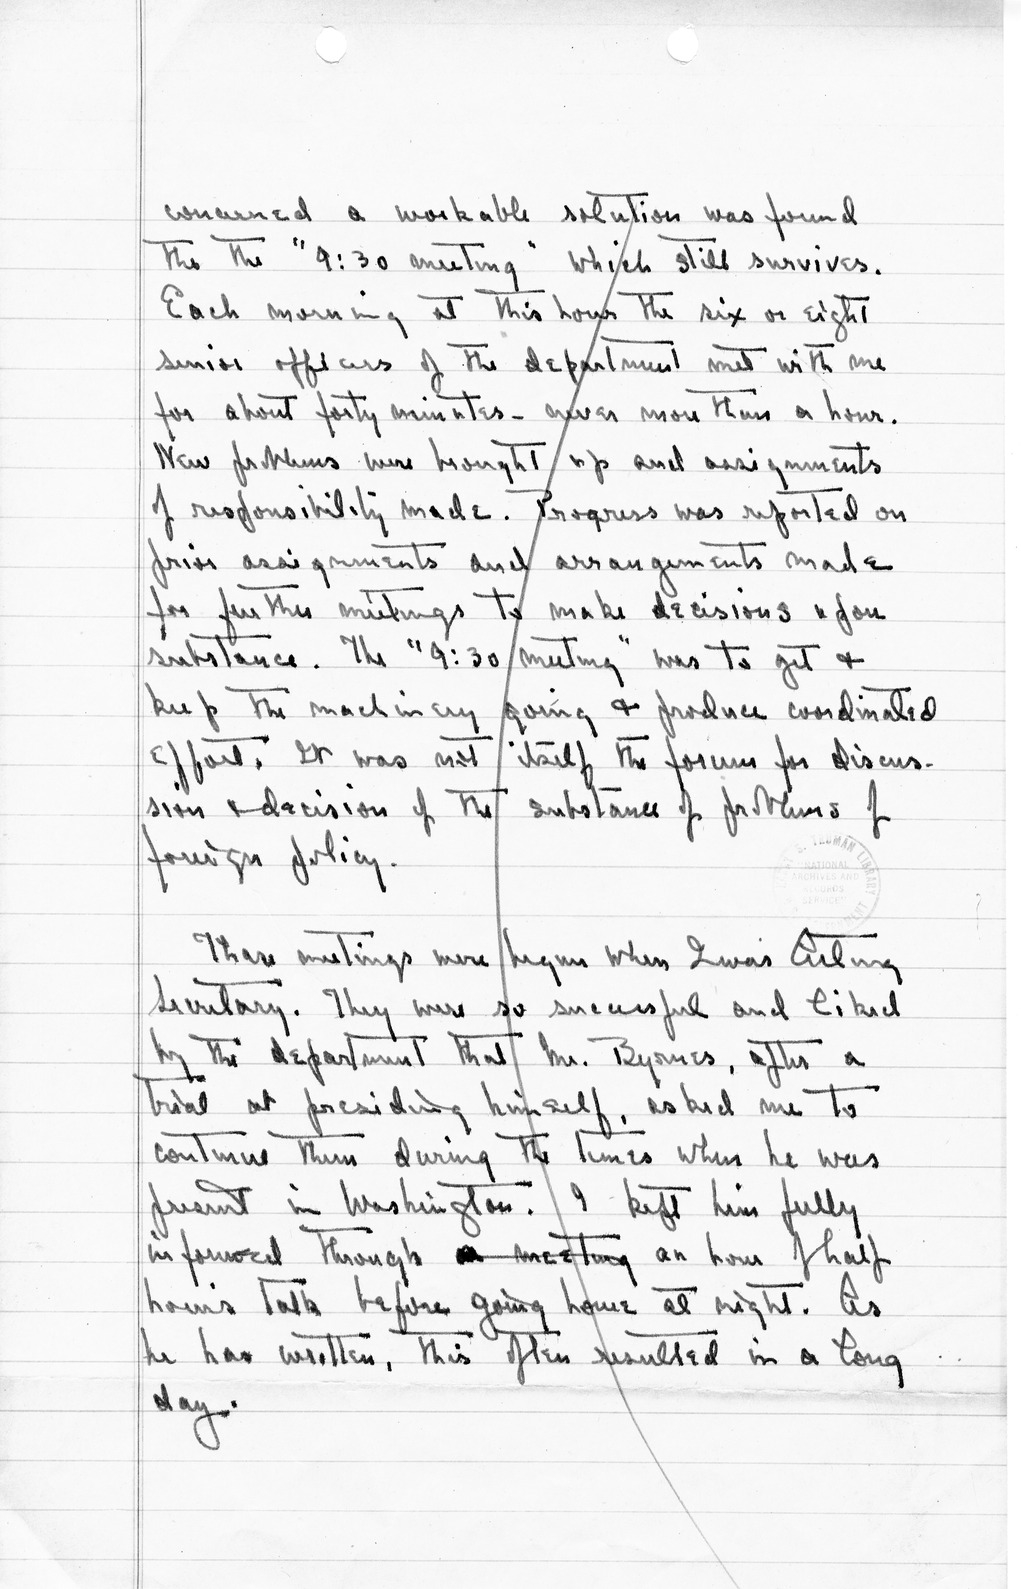 concerned a workable solution was found
the the "9:30 meeting" which still survives.
Each morning at this hour the six or eight
senior officers of the department met with me
for about forty minutes - never more than a hour.
New problems were brought up and assignments
of responsibility made. Progress was reported on
prior assignments and arrangements made
for further meetings to make decisions upon
substance. The "9:30 meeting" was to get &
keep the machinery going & produce coordinated
effort. It was not itself the forum for discus-
sion & decision of the substance of problems of
foreign policy.
These meetings were begun when I was Acting
Secretary. They were so successful and liked
by the department that Mr. Byrnes, after a
trial at presiding himself, asked me to
continue them during the times when he was
present in Washington. I kept him fully
informed through a meeting an hour & half
hour's talk before going home at night. As
he has written, this often resulted in a long
day.
S. TRUMAN LIBRARY
"NATIONAL
ARCHIVES AND
RECORDS
SERVICE"